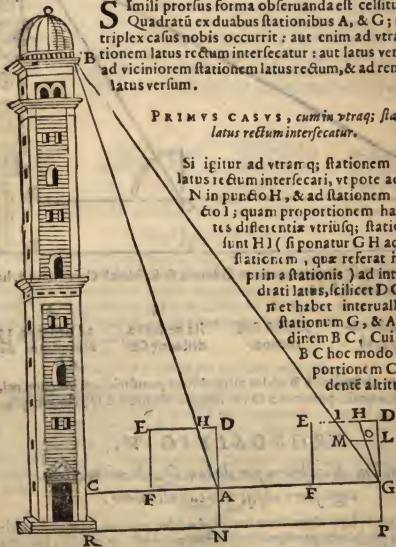 Simili prorsus forma obseruanda est celsitu
Quadratũ ex duabus stationibus A, & G;
triplex casus nobis occurrit: aut enim ad vtra
tionem latus rectum intersecatur: aut latus ver
ad viciniorem stationem latus rectum, & ad ren
latus versum.
PRIMVS CASVS, cum in vtraq; sta
latus rectum intersecatur.
Si igitur ad vtramq; stationem
latus rectum intersecari, vt pote ad
N in puncto H, & ad stationem
cto I; quam proportionem ha
tes differentia vtriusq; statio
sunt HI (si ponatur G H ad
stationem, quæ referat
stationis) ad int
drati latus, scilicet D G
net habet interuall
stationum G, & A
dinem B C, Cui
B C hoc modo
portionem C
dentẽ altitu
B
E H D
E I H D
M O L
C F A F G
R N P